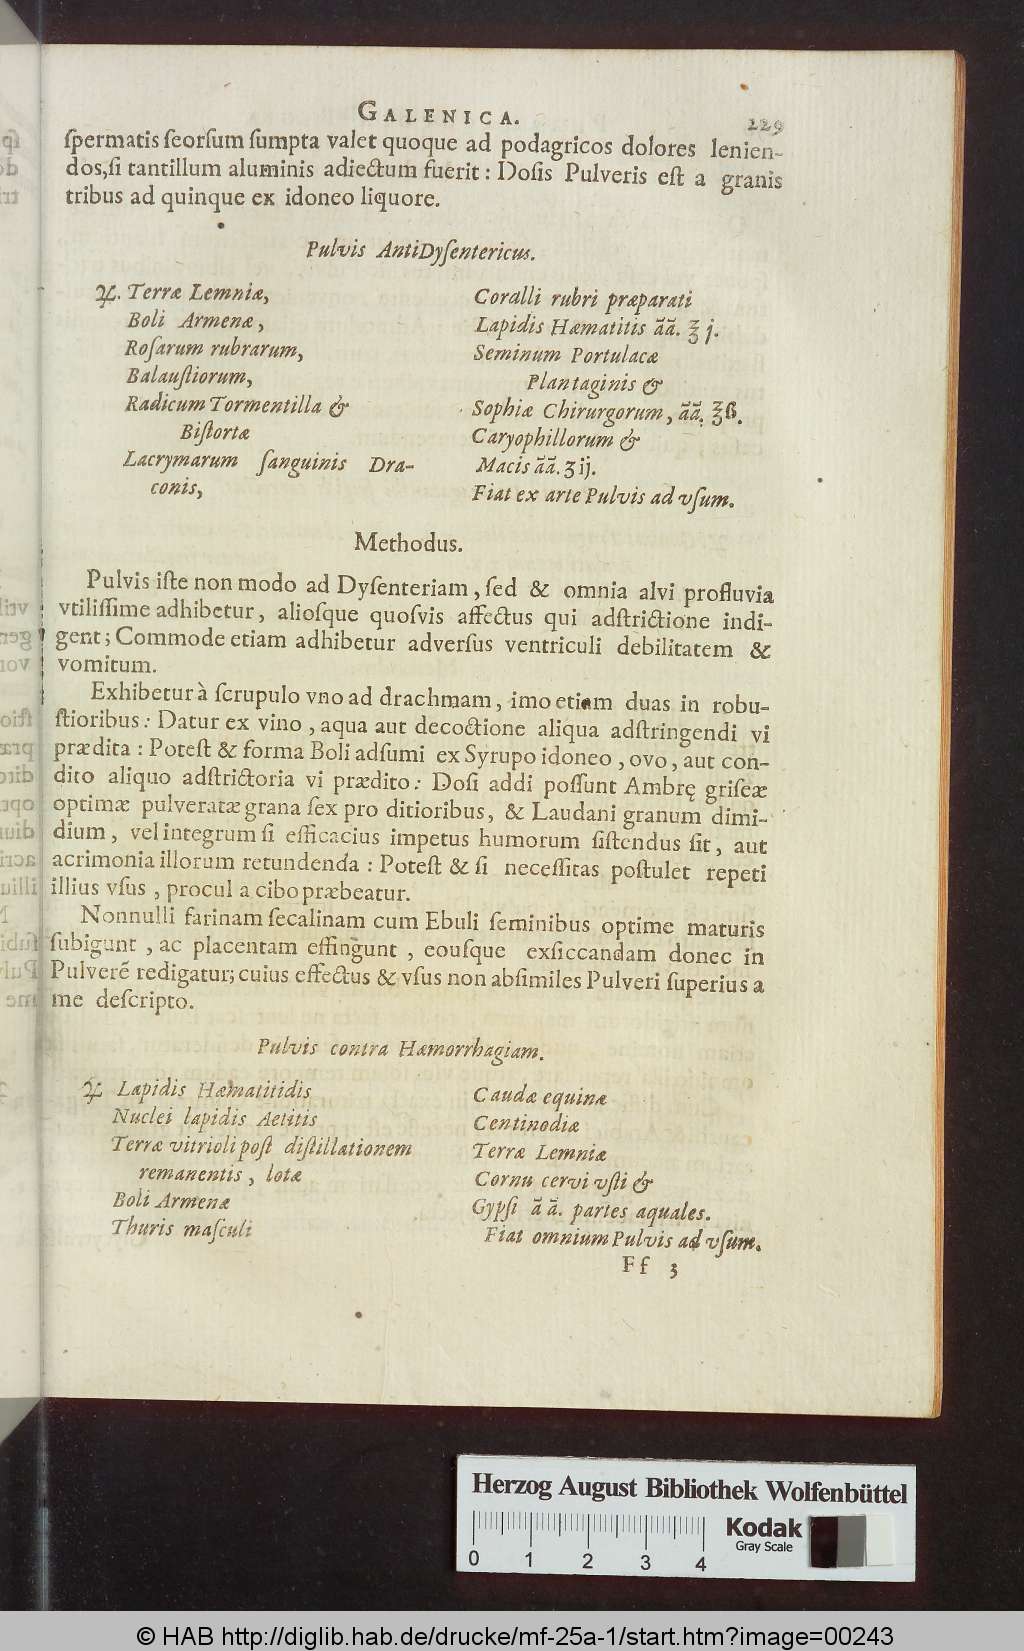 GALENICA. 229
ſpermatis ſeorſum ſumpta valet quoque ad podagricos dolores lenien-
dos,ſi tantillum aluminis adiectum fuerit : Doſis Pulveris eſt a granis
tribus ad quinque ex idoneo liquore.
Pulvis AntiDyſentericus.
♃. Terræ Lemniæ,
Boli Armenæ,
Roſarum rubrarum,
Balauſtiorum,
Radicum Tormentilla &
Biſtortæ
Lacrymarum ſanguinis Dra-
conis,
Coralli rubri præparati
Lapidis Hæmatitis ãã. ʒ j.
Seminum Portulacæ
Plantaginis &
Sophiæ Chirurgorum, ãã. ʒß.
Caryophillorum &
Macis ãã. ʒij.
Fiat ex arte Pulvis ad vſum.
Methodus.
Pulvis iſte non modo ad Dyſenteriam, ſed & omnia alvi profluvia
vtiliſſime adhibetur, alioſque quoſvis affectus qui adſtrictione indi-
gent; Commode etiam adhibetur adverſus ventriculi debilitatem &
vomitum.
Exhibetur à ſcrupulo vno ad drachmam, imo etiam duas in robu-
ſtioribus: Datur ex vino, aqua aut decoctione aliqua adſtringendi vi
prædita : Poteſt & forma Boli adſumi ex Syrupo idoneo, ovo, aut con-
dito aliquo adſtrictoria vi prædito: Doſi addi poſſunt Ambrę griſeæ
optimæ pulveratæ grana ſex pro ditioribus, & Laudani granum dimi-
dium, vel integrum ſi efficacius impetus humorum ſiſtendus ſit, aut
acrimonia illorum retundenda : Poteſt & ſi neceſſitas poſtulet repeti
illius vſus, procul a cibo præbeatur.
Nonnulli farinam ſecalinam cum Ebuli ſeminibus optime maturis
ſubigunt, ac placentam effingunt, eouſque exſiccandam donec in
Pulverẽ redigatur; cuius effectus & vſus non abſimiles Pulveri ſuperius a
me deſcripto.
Pulvis contra Hæmorrhagiam.
♃ Lapidis Hæmatitidis
Nuclei lapidis Aetitis
Terræ vitrioli poſt diſtillationem
remanentis, lotæ
Boli Armenæ
Thuris maſculi
Caudæ equinæ
Centinodiæ
Terræ Lemniæ
Cornu cervi vſti &
Gypſi ã ã. partes æquales.
Fiat omnium Pulvis ad vſum.
Ff 3
Herzog August Bibliothek Wolfenbüttel
0 1 2 3 4
Kodak
Gray Scale
© HAB http://diglib.hab.de/drucke/mf-25a-1/start.htm?image=00243